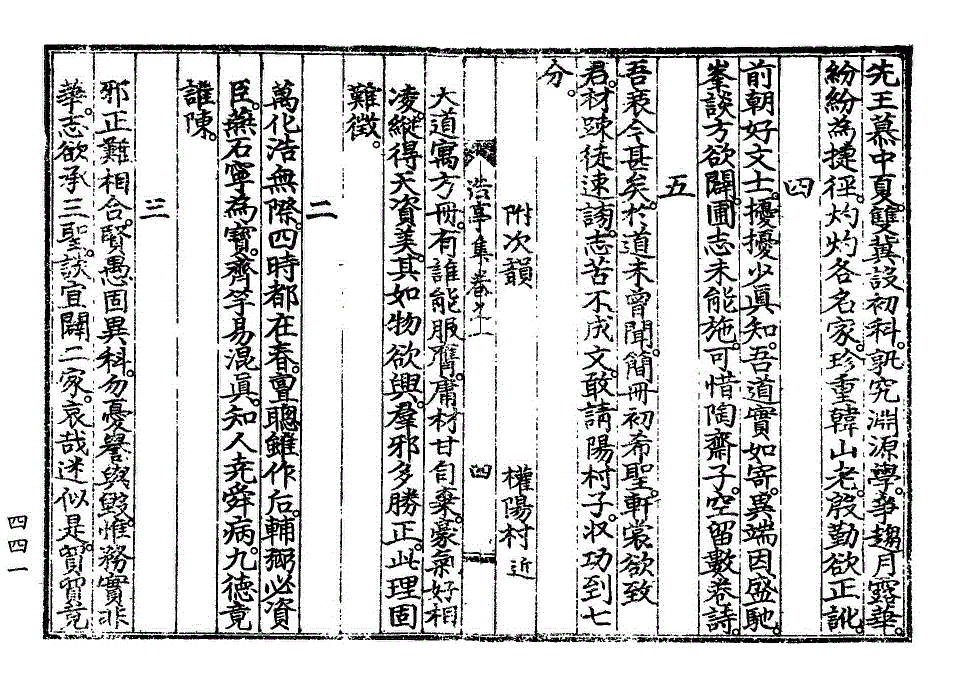 先王慕中夏。雙冀設初科。孰究淵源學。爭趨月露華。
紛紛為捷徑。灼灼各名家。珍重韓山老。殷勤欲正訛。
四
前朝好文士。擾擾少眞知。吾道實如寄。異端因盛馳。
峯談方欲闢。圃志未能施。可惜陶齋子。空留數卷詩。
五
吾衰今甚矣。於道未曾聞。簡冊初希聖。軒裳欲致
君。材疎徒速謗。志苦不成文。敢請陽村子。收功到七
分。
附次韻 權陽村近
浩亭集卷之一 四
大道寓方冊。有誰能服膺。庸材甘自棄。豪氣好相
凌。縱得天資美。其如物欲興。羣邪多勝正。此理固
難徵。
二
萬化浩無際。四時都在春。亶聰雖作后。輔弼必資
臣。蕪石寧為寶。齊竽易混眞。知人堯舜病。九德竟
誰陳。
三
邪正難相合。賢愚固異科。勿憂譽與毀。惟務實非
華。志欲承三聖。談宜闢二家。哀哉迷似是。習習竟
四四一